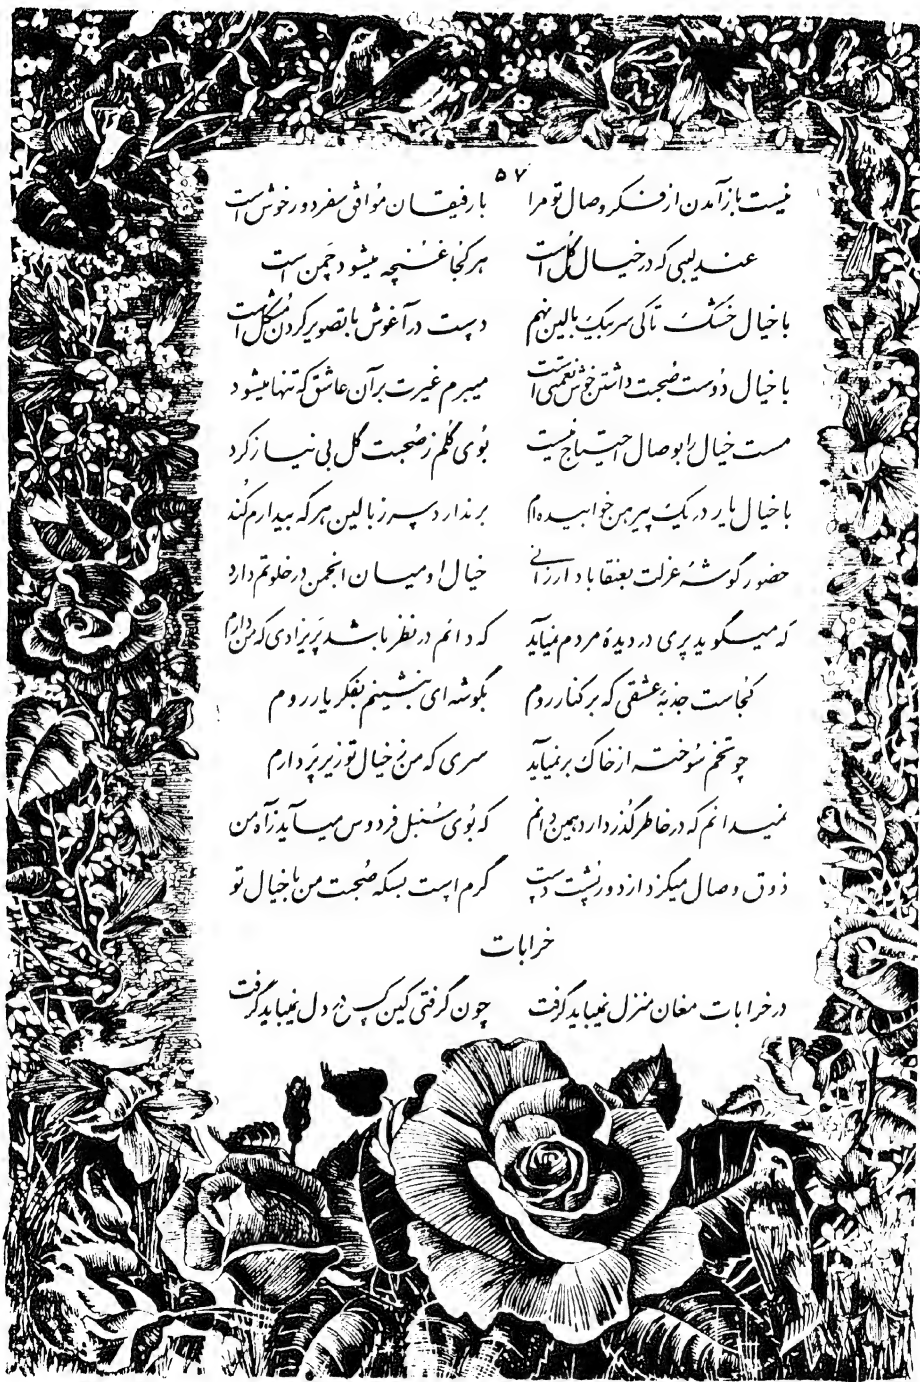 ۵۷
نیست باز آمدن از فکر وصال تو مرا با رفیقان موافق سفر دور خوش است
عندلیبی که در خیال گل است هر کجا غنچه میشود چمن است
با خیال خشک تا کی سر بیک بالین نهم دست در آغوش با تصویر کردن مشکل است
با خیال دوست صحبت داشتن خوش نعمتی است میبرم غیرت بر آن عاشق که تنها میشود
مست خیال را بوصال احتیاج نیست بوی گلم ز صحبت گل بی نیاز کرد
با خیال یار در یک پیرهن خوابیده ام برندارد سر ز بالین هر که بیدارم کند
حضور گوشهٔ عزلت بعنقا باد ارزانی خیال او میان انجمن در خلوتم دارد
که میگوید پری در دیدهٔ مردم نمیآید که دائم در نظر باشد پریزادی که من دارم
کجاست جذبهٔ عشقی که بر کنار روم بگوشه ای بنشینم بفکر یار روم
چو تخم سوخته از خاک بر نمیآید سری که من ز خیال تو زیر پر دارم
نمیدانم که در خاطر گذر دارد همین دانم که بوی سنبل فردوس میآید ز آه من
ذوق وصال میگزد از دور پشت دست گرم است بسکه صحبت من با خیال تو
خرابات
در خرابات مغان منزل نمیباید گرفت چون گرفتی کین کس در دل نمیباید گرفت